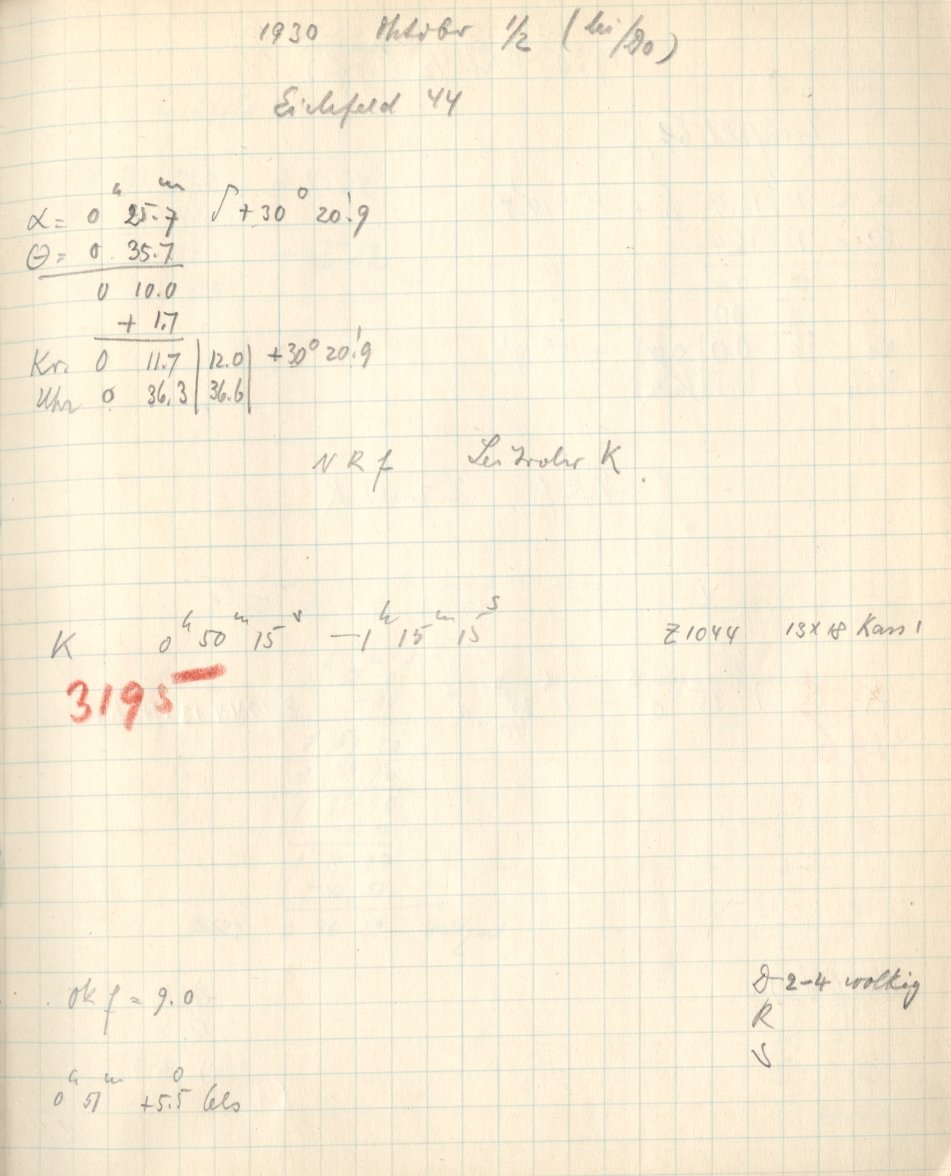 1930 Oktober 1/2 (
Eichfeld 44
α = 0ʰ 25.7ᵐ δ + 30° 20'.9
Θ = 0 35.7
0 10.0
+ 1.7
Kr. 0 11.7 | 12.0 | +30° 20'.9
Uhr 0 36.3 | 36.6 |
N R f Leitrohr K.
K 0ʰ 50ᵐ 15ˢ — 1ʰ 15ᵐ 15ˢ Z 1044 13 x 18 Kass 1
3195
Ok f = 9.0
D 2-4 wolkig
R
S
0ʰ 51ᵐ +5.5° Cels